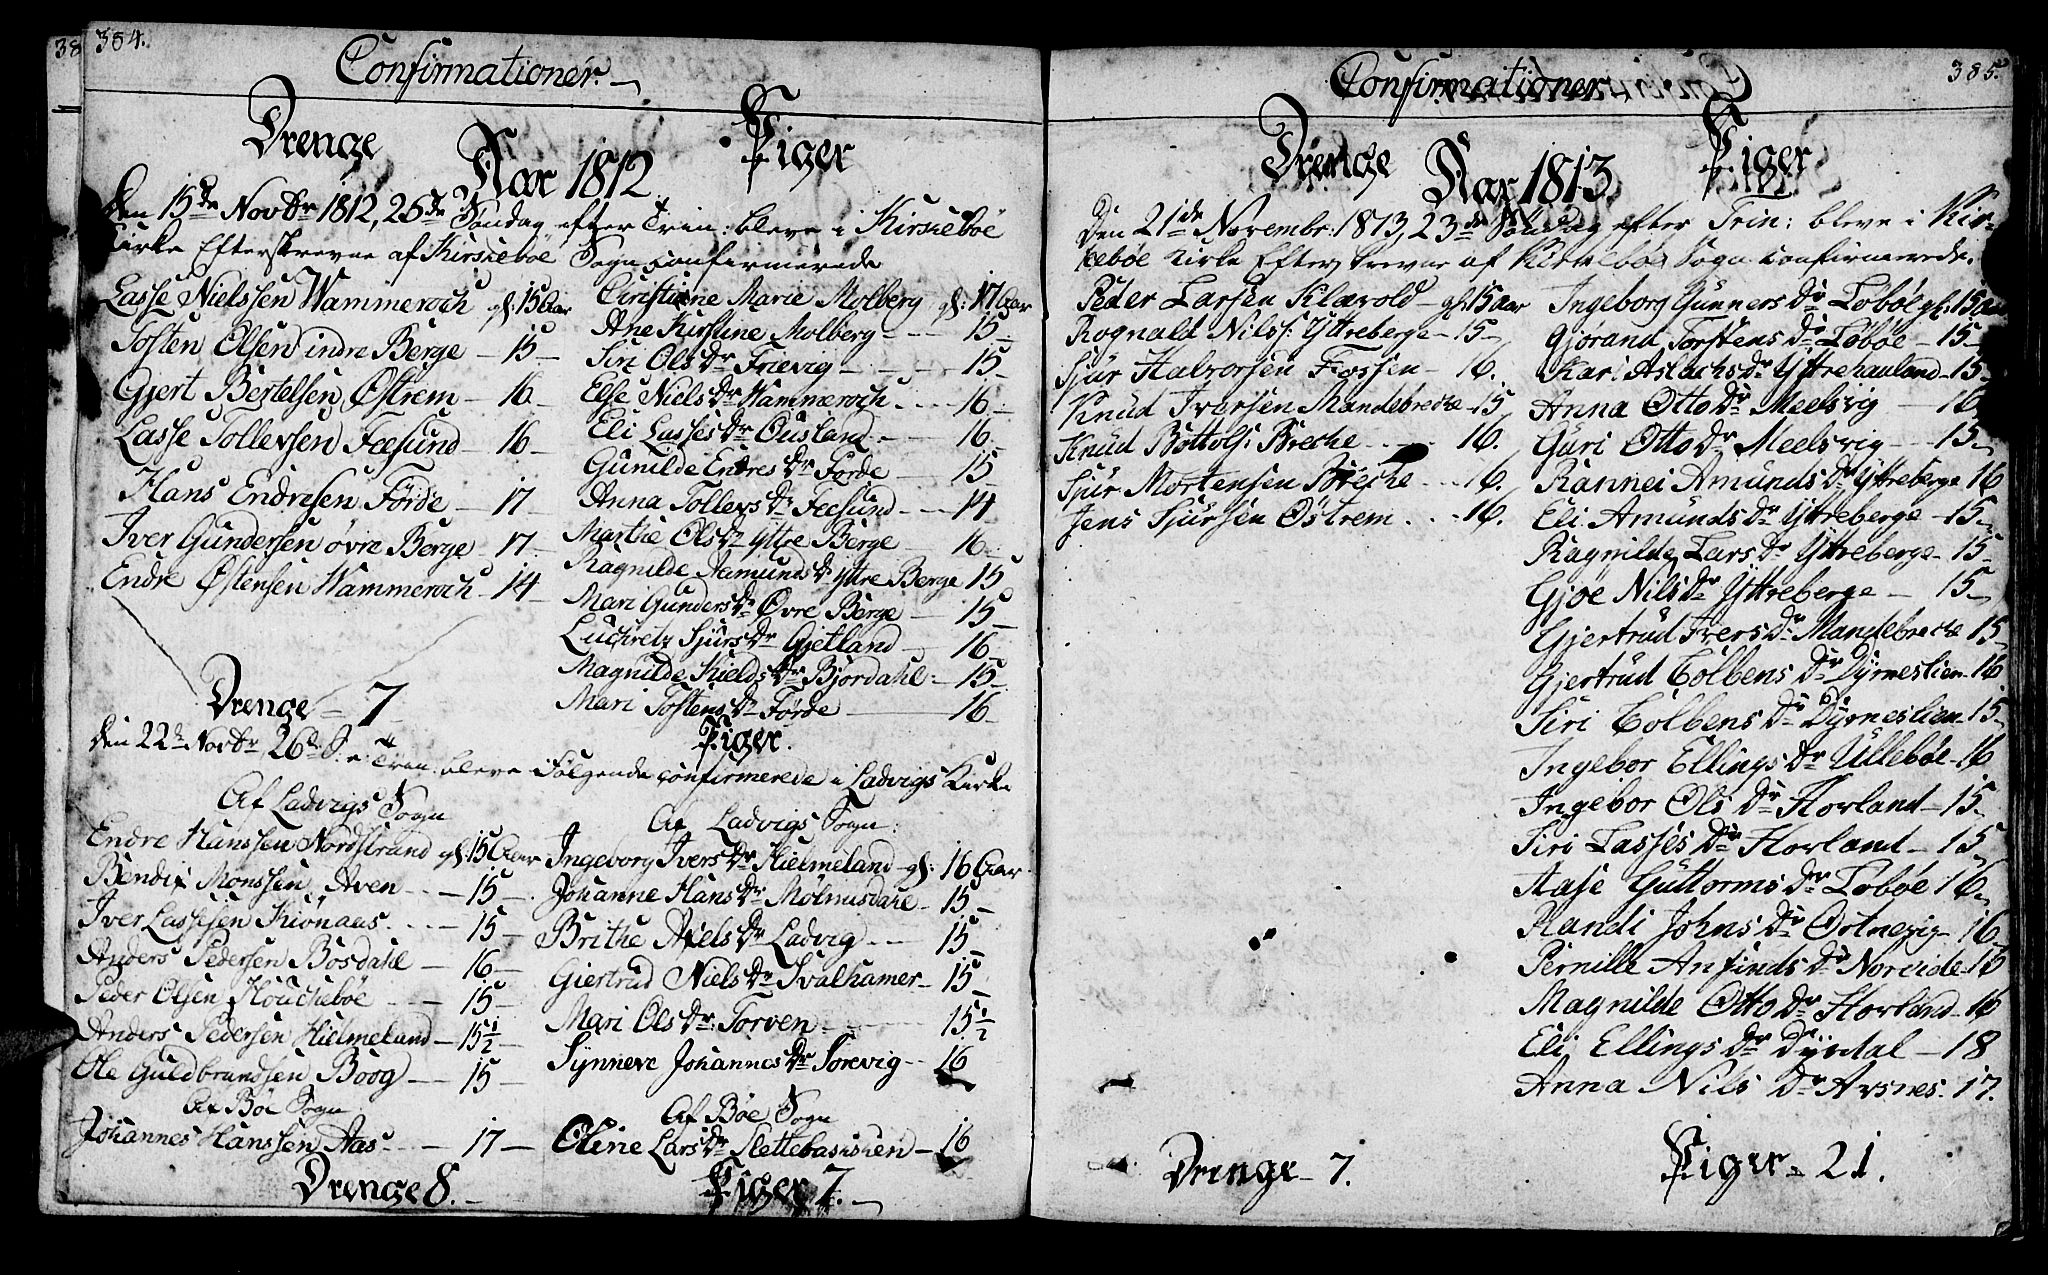 38 384.
Confirmationer.
Drenge
Piger
Aar 1812.
Den 15de Novbr 1812, 26de Søndag efter Trin: bleve i Kirkeböe
Kirke Efterskrevne af Kirkeböe Sogn confirmerede
Lasse Nielssen Wammeroch gl: 15 Aar
Tosten Olsen indre Berge — 15 —
Gjert Bertelsen Østrem — 16 —
Lasse Tollevsen Feesund — 16 —
Hans Endresen Förde — 17 —
Iver Gundersen øvre Berge — 17 —
Endre Østensen Wammeroch — 14 —
Drenge = 7
Christiane Marie Molberg gl: 17 Aar
Ane Kirstine Molberg — 15 —
Siri Ols Dr Frævig — 15
Else Niels Dr Wammeroch — 16 —
Eli Lasses Dr Ousland — 16
Gunilde Endres Dr Förde — 15
Anna Tollevs Dr Feesund — 14
Marthe Ols Dr Yttre Berge — 16
Ragnilde Aamunds Dr Yttre Berge 15
Mari Gunders Dr Øvre Berge — 15 —
Sjurs Dr Gjetland — 16 —
Magnilde Kields Dr Bjordahl — 15 —
Mari Tostens Dr Förde — 16 —
Piger.
Den 22de Novbr 26de S. e. Trin: bleve Fölgende confirmerede i Ladvigs Kirke
Af Ladvigs Sogn
Endre Hanssen Nordstrand gl: 15 Aar
Bendix Monssen Aven — 15 —
Iver Lassesen Kionaas — 15 —
Anders Pedersen Bösdahl — 16 —
Peder Olsen Houcheböe — 15 —
Anders Pedersen Hielmeland — 15½ —
Ole Guldbrandsen Boog — 15 —
Af Böe Sogn
Johannes Hanssen Aas — 17 —
Drenge 8. —
Af Ladvigs Sogn:
Ingeborg Ivers Dr Hielmeland gl: 16 Aar.
Johanne Hans Dr Molmesdahl — 15 —
Brithe Axels Dr Ladvig — 15 —
Giertrud Niels Dr Svalhamer — 15 —
Mari Ols Dr Torven — 15½
Synneve Johannes Dr Sorevig — 16
Af Böe Sogn
Oline Lars Dr Slettebaskien — 16
Piger 7. —
385.
Confirmationer
Drenge
Piger
Aar 1813.
Den 21de Novembr: 1813, 23de Söndag efter Trin: bleve i Kir-
keböe Kirke Efterskrevne af Kirkeböe Sogn confirmerede.
Peder Larsen Klævold — gl. 15 aar
Rognald Nilss: Yttreberge — 15 —
Sjur Halvorsen Fossen — 16.
Knud Iversen Mandebreche — 15
Knud Bottolfs: Breche — 16.
Sjur Mortensen Breche — 16.
Jens Sjursen Østrem — 16.
Drenge — 7.
Ingeborg Gunners Dr Löböe gl. 15 aar
Gjörand Torstens Dr Löböe — 15 —
Kari Aslachs Dr Yttrehauland — 15 —
Anna Otto Dr Meelsvig — 16
Guri Otto Dr Meelsvig — 15 —
Rannei Amunds Dr Yttreberge 16
Eli Amunds Dr Yttreberge — 15 —
Ragnilde Lars Dr Yttreberge — 15
Gjöe Nils Dr Yttreberge — 15 —
Gjertrud Ivers Dr Mandebreche 15 —
Gjertrud Colbens Dr Dyrneslien — 16
Siri Colbens Dr Dyrneslien — 15 —
Ingebor Ellings Dr Ulleböe — 16
Ingebor Ols Dr Hovland — 15
Siri Lasses Dr Hovland — 15
Aase Guttorms Dr Löböe 16 —
Randi Johns Dr Ortnevig — 16
Pernille Anfinds Dr Norvide — 15
Magnilde Otto Dr Hovland — 16
Eli Ellings Dr Dyrdal — 18
Anna Nils Dr Avsnes. 17.
Piger — 21.